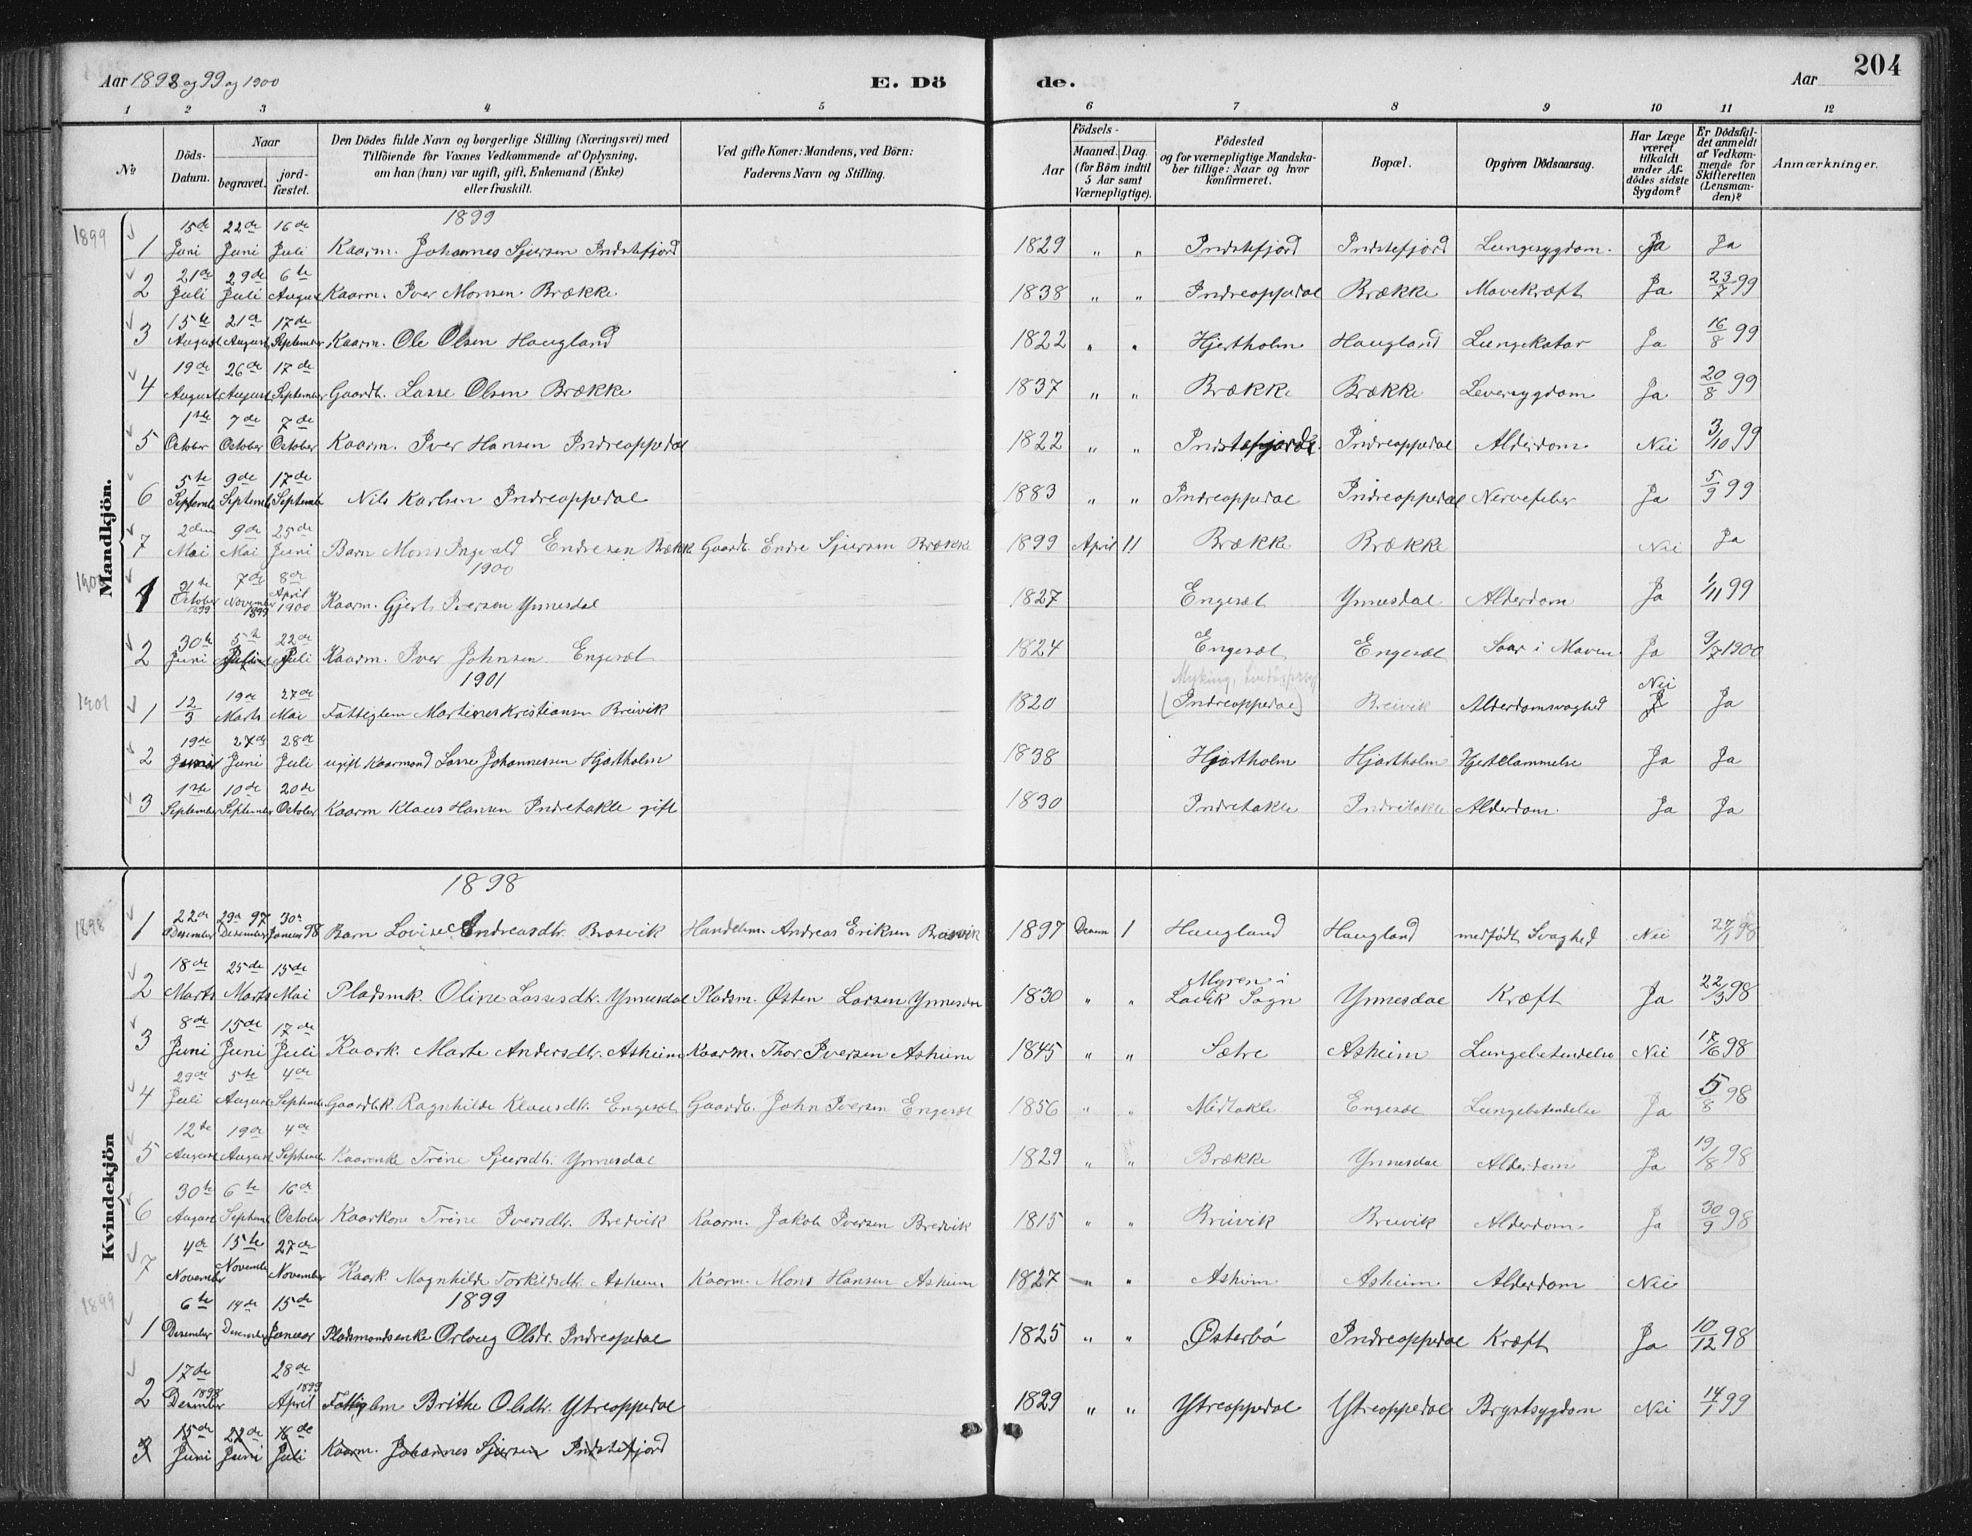 Aar 1898 og 99 og 1900 E. Dö de. Aar 204
1 2 3 4 5 6 7 8 9 10 11 12
No Döds-Datum. Naar begravet. jord-fæstet. Den Dödes fulde Navn og borgerlige Stilling (Næringsvei) med Tilföiende for Voxnes Vedkommende af Oplysning, om han (hun) var ugift, gift, Enkemand (Enke) eller fraskilt. Ved gifte Koner: Mandens, ved Börn: Faderens Navn og Stilling. Födsels- Aar Maaned. Dag (for Börn indtil 5 Aar samt Værnepligtige). Födested og for værnepligtige Mandskaber tillige: Naar og hvor konfirmeret. Bopæl. Opgiven Dödsaarsag. Har Læge været tilkaldt under Afdödes sidste Sygdom? Er Dödsfaldet anmeldt af Vedkommende for Skifteretten (Lensmanden)? Anmærkninger.
Mandkjön.
1899
1899 1 15de Juni 22de Juni 16de Juli Kaarm. Johannes Sjursen Indstefjord 1829 " " Indstefjord Indstefjord Lungesygdom. Ja Ja
2 21de Juli 29de Juli 6te August Kaarm. Iver Monsen Brække 1838 " " Indreoppedal Brække Mavekræft Ja 23/7 99
3 15te August 21de August 17de September Kaarm. Ole Olsen Haugland 1822 " " Hjertholm Haugland Lungekatar Ja 16/8 99
4 19de August 26de August 17de September Gaardb. Lasse Olsen Brække 1837 " " Brække Brække Leversygdom Ja 20/8 99
5 1ste October 7de October 7de October Kaarm. Iver Hansen Indreoppedal 1822 " " Indstefjord Indreoppedal Alderdom Nei 3/10 99
6 5te September 9de September 17de September Nils Karlsen Indreoppedal 1883 " " Indreoppedal Indreoppedal Nervefeber Ja 5/9 99
7 2den Mai 9de Mai 25de Juni Barn Mons Ingvald Endresen Brække Gaardb. Endre Sjursen Brække 1899 April 11 Brække Brække Nei Ja
1900
1900 1 31te October 1899 7de November 1899 8de April 1900 Kaarm. Gjert Iversen Ynnesdal 1827 Engesæt Ynnesdal Alderdom Ja 1/11 99
2 30te Juni 5te Juli 22de Juli Kaarm. Iver Johnsen Engesæt 1824 Engesæt Engesæt Saar i Maven Ja 9/7 1900
1901
1901 1 12/3 19de Marts 27de Mai Fattiglem Martines Kristiansen Breivik 1820 Myking, (Indreoppedal) Breivik Alderdomsvaghed Nei Ja
2 19de Juni 27de Juni 28de Juli ugift Kaarmand Lasse Johannessen Hjartholm 1838 Hjartholm Hjartholm Hjertelammelse Ja Ja
3 1ste September 10de September 20de October Kaarm Klaus Hansen Indretakle gift 1830 Indretakle Indretakle Alderdom Ja Ja
Kvindekjön
1898
1898 1 22de Desember 29de 97 Desember 30te Januar 98 Barn Lovise Andreasdtr. Brosvik Handelsm. Andreas Eriksen Brosvik 1897 Desem 1 Haugland Haugland medfödt Svaghed Nei 27/1 98
2 18de Marts 25de Marts 15de Mai Pladsmk. Oline Lassesdtr. Ynnesdal Pladsm. Østen Larsen Ynnesdal 1830 " " Myren i Lavik Sogn Ynnesdal Kræft Ja 22/3 98
3 8de Juni 15de Juni 17de Juli Kaark. Marte Andersdtr. Asheim Kaarm. Thor Iversen Asheim 1845 " " Sætre Asheim Lungebetendelse Nei 17/6 98
4 29de Juli 5te August 4de September Gaardbk. Ragnhilde Klausdtr. Engesæt Gaardb. John Iversen Engesæt 1856 " " Midtakle Engesæt Lungebetendelse Ja 5/8 98
5 12te August 19de August 4de Septemb. Kaarenke Trine Sjursdtr. Ynnesdal 1829 " " Brække Ynnesdal Alderdom Ja 19/8 98
6 30te August 6te Septemb 16de October Kaarkone Trine Iversdtr. Breivik Kaarm. Jakob Iversen Breivik 1815 " " Breivik Breivik Alderdom Ja 30/9 98
7 4de November 15te November 27de November Kaark. Magnhilde Torkildsdtr. Asheim Kaarm. Mons Hansen Asheim 1827 " " Asheim Asheim Alderdom Nei
1899
1899 1 6te Desember 14de Desember 15de Januar Pladsmandsenke Orloug Olsdr. Indreoppedal 1825 " " Østerbö Indreoppedal Kræft Ja 10/12 98
2 17de 1898 Desember 28de 1899 April Fattiglem Brithe Olsdtr. Ytreoppedal 1829 " " Ytreoppedal Ytreoppedal Brystsygdom Nei 14/1 99
3 15de Juni 22de Juni 16de Juli Kaarm. Johannes Sjursen Indstefjord